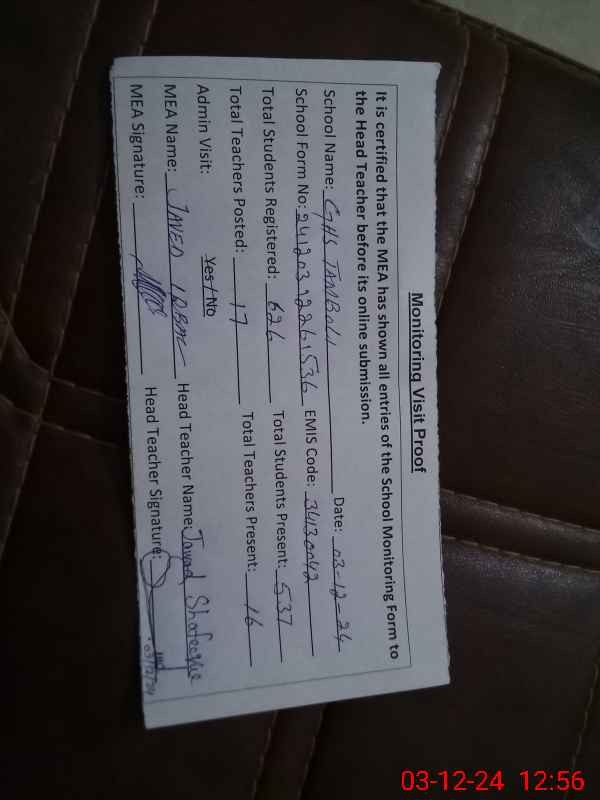 Monitoring Visit Proof
It is certified that the MEA has shown all entries of the School Monitoring Form to
the Head Teacher before its online submission.
School Name: GHS TAMBOLI Date: 03-12-24
School Form No: 24120392261536 EMIS Code: 34130042
Total Students Registered: 626 Total Students Present: 537
Total Teachers Posted: 17 Total Teachers Present: 16
Admin Visit: Yes / No
MEA Name: JAVED IQBAL Head Teacher Name: Javad Shafeeque
MEA Signature: Head Teacher Signature:
03/12/24
03-12-24 12:56